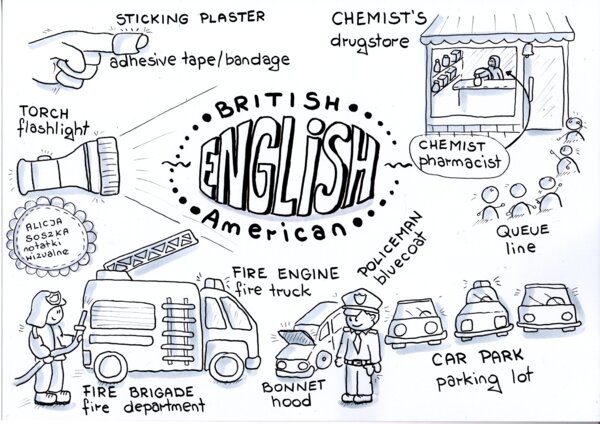 STICKING PLASTER
adhesive tape/bandage
CHEMIST'S
drugstore
TORCH
flashlight
BRITISH
ENGLISH
American
CHEMIST
pharmacist
QUEUE
line
ALICJA
SOSZKA
notatki
wizualne
POLICEMAN
bluecoat
FIRE ENGINE
fire truck
FIRE BRIGADE
fire department
BONNET
hood
CAR PARK
parking lot